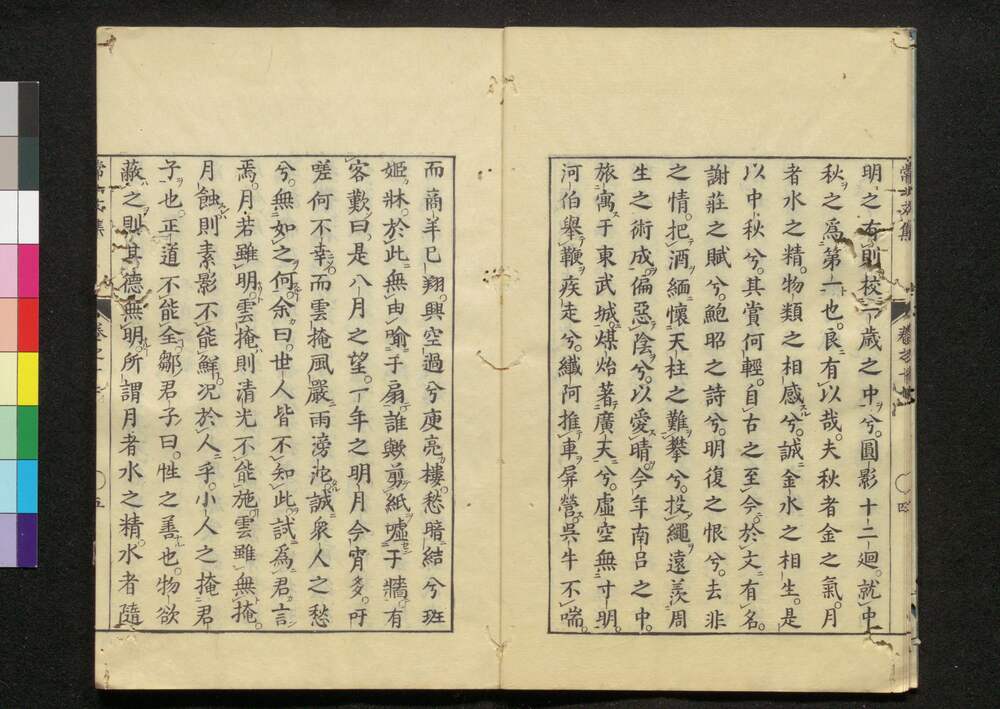 明之友則校一歲之中兮圓影十二廻就中
秋之為第一也良有以哉夫秋者金之氣月
者水之精物類之相感兮誠金水之相生是
以中秋兮其賞何輕自古之至今於文有名
謝莊之賦兮鮑昭之詩兮明復之恨兮去非
之情把酒緬懷天柱之難攀兮投繩遠羨周
生之術成偏惡陰兮以愛晴今年南呂之中
旅寓于東武城煤炲著廣天兮虛空無寸明
河伯舉鞭疾走兮纖阿推車屏營吳牛不喘
而商羊已翔興空過兮庾亮樓愁暗結兮班
姬牀於此無由喻于扇誰歟剪紙噓于牆有
客歎曰是八月之望一年之明月今宵多吁
嗟何不幸而雲掩風嚴雨滂沱誠衆人之愁
兮無如之何余曰世人皆不知此試為君言
焉月若雖明雲掩則清光不能施雲雖無掩
月蝕則素影不能鮮況於人乎小人之掩君
子也正道不能全鄒君子曰性之善也物欲
蔽之則其德無明所謂月者水之精水者隨